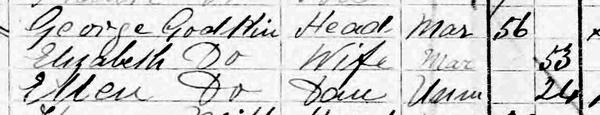 George Godkin Head Mar 56
Elizabeth Do Wife Mar 53
Ellen Do Dau Unm 24